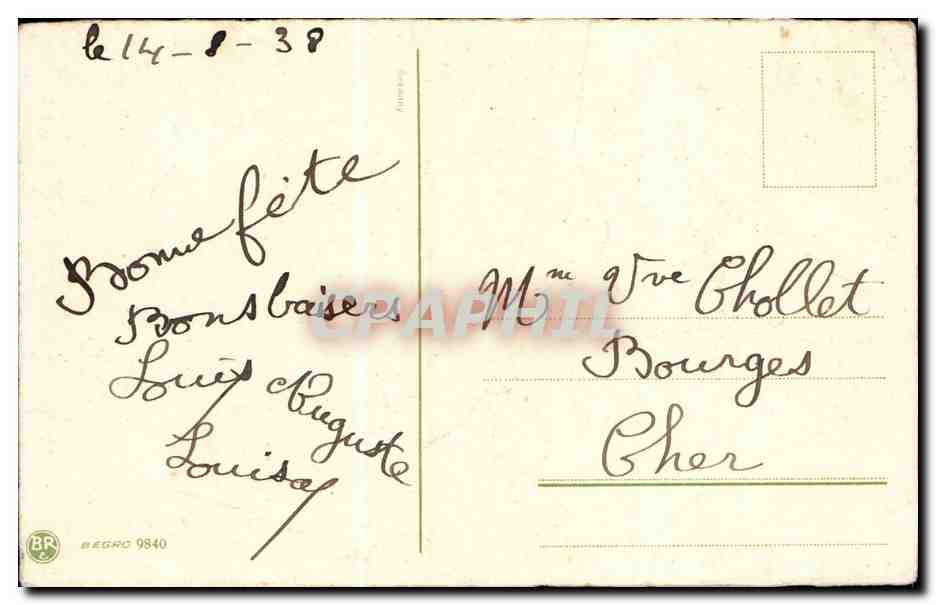 le 14 - 8 - 38
Bonne fête
Bons baisers
Louis Auguste
Louisa
BR
c
BEGRO 9840
Germany
CPAPHIL
Mme Vve Chollet
Bourges
Cher